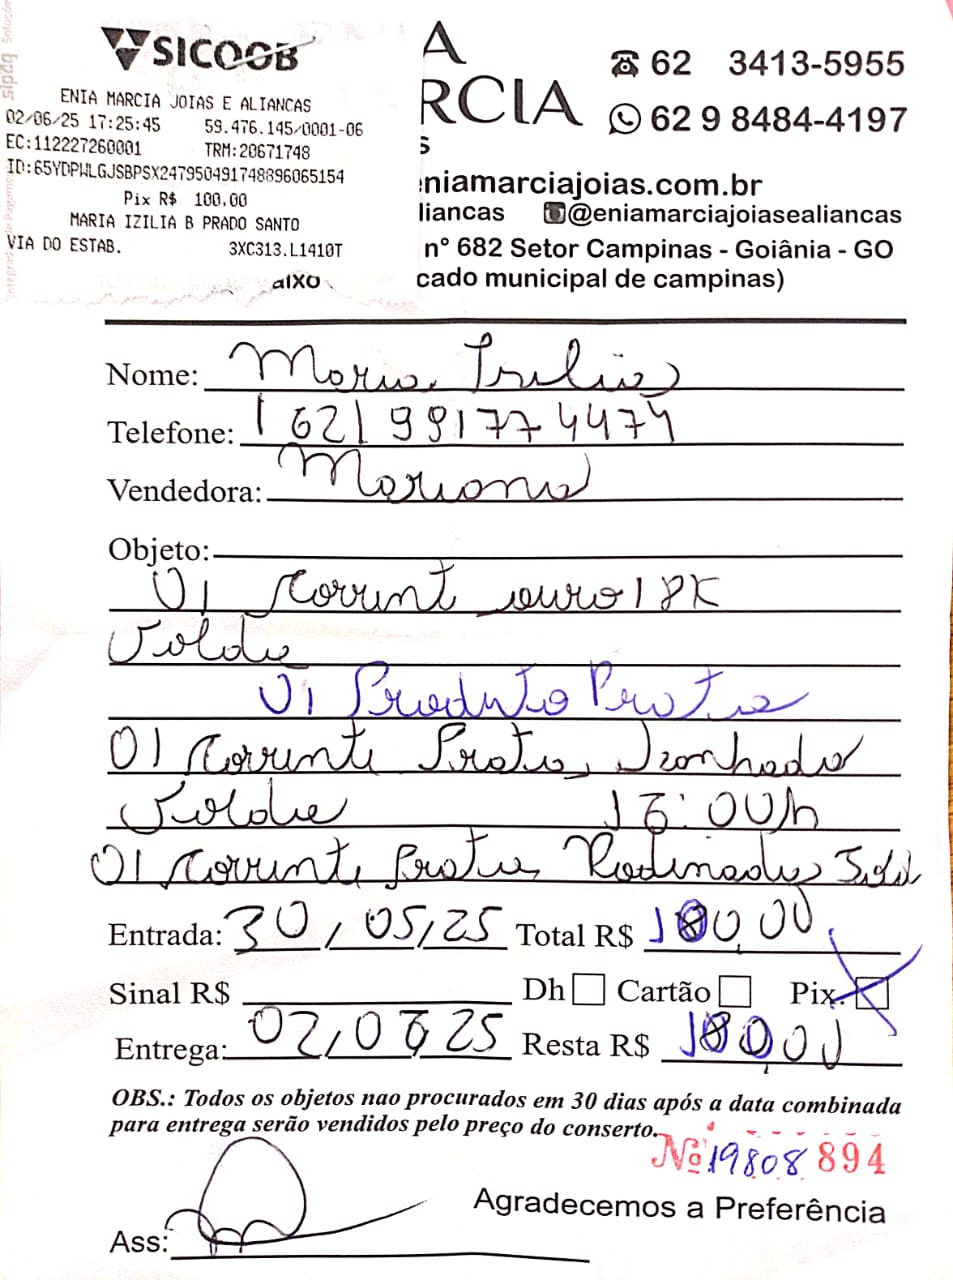 SICOOB
ENIA MARCIA JOIAS E ALIANCAS
02/06/25 17:25:45 59.476.145/0001-06
EC:112227260001 TRM:20671748
ID:65YDPWLGJSBPSX247950491748896065154
Pix R$ 100,00
MARIA IZILIA B PRADO SANTO
VIA DO ESTAB. 3XC313.L1410T
aixo
A
RCIA
s
62 3413-5955
62 9 8484-4197
eniamarciajoias.com.br
liancas @eniamarciajoiasealiancas
nº 682 Setor Campinas - Goiânia - GO
cado municipal de campinas)
Nome: Maria Izilia
Telefone: (62) 99177 4474
Vendedora: Mariana
Objeto:
01 Corrent ouro 18K
Solda
01 Produto Prata
01 Corrente Prata
Solda :00h
01 Corrente Prata Rodinada
Entrada: 30/05/25 Total R$ 100,00
Sinal R$ Dh Cartão Pix
Entrega: 02/06/25 Resta R$ 100,00
OBS.: Todos os objetos nao procurados em 30 dias após a data combinada
para entrega serão vendidos pelo preço do conserto.
Nº 19808 894
Agradecemos a Preferência
Ass: